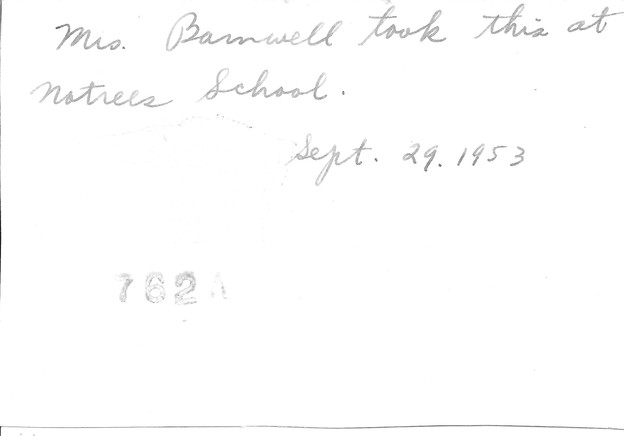 Mrs. Barnwell took this at
Notrees School.
Sept. 29. 1953
762A